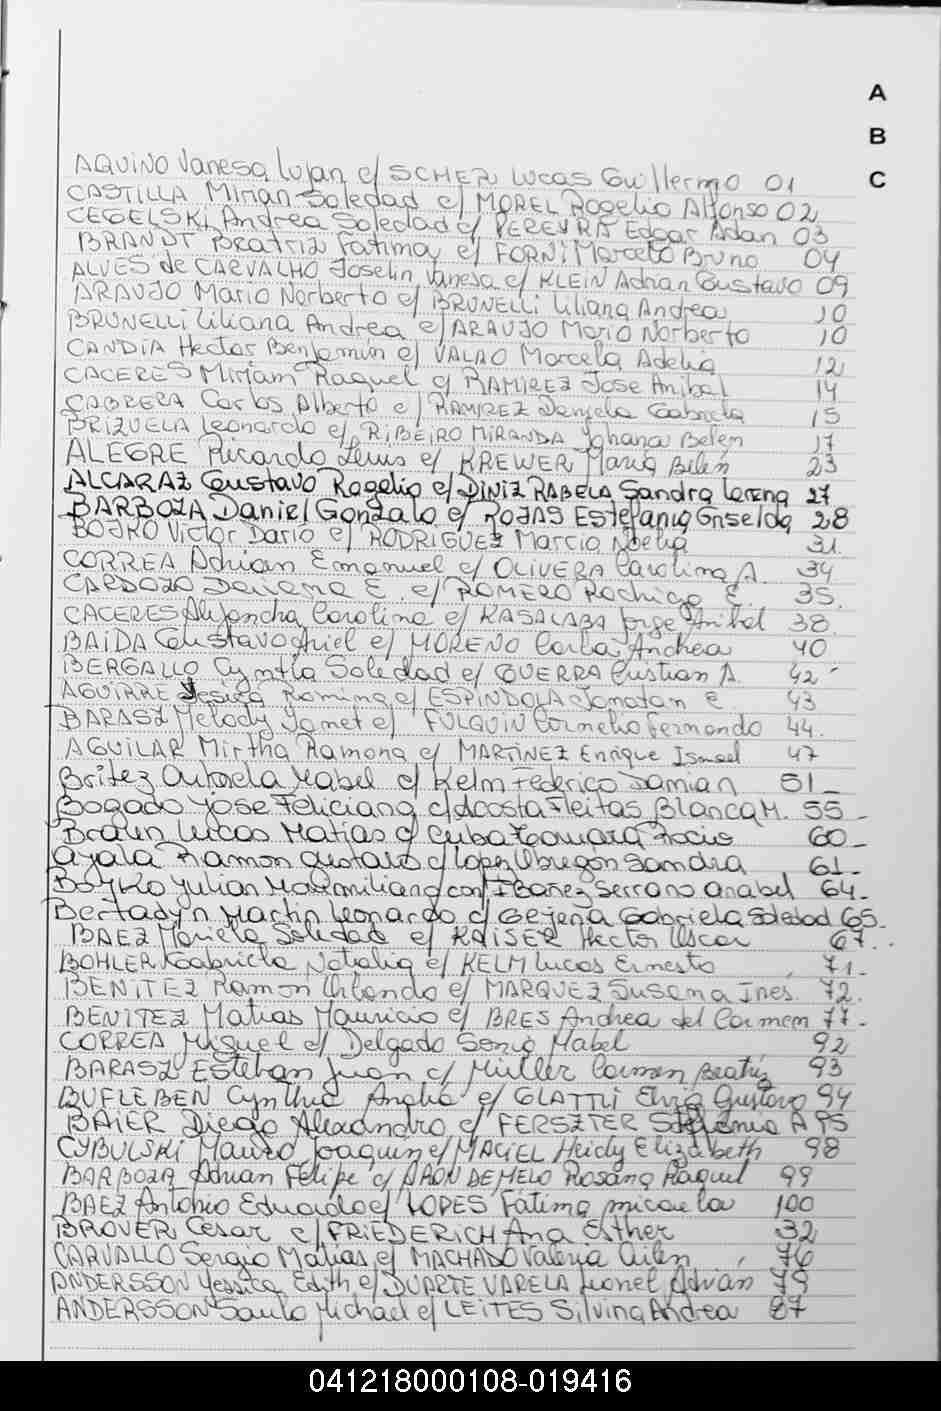 A
B
C
AQUINO Vanesa Lujan c/ SCHER Lucas Guillermo 01
CASTILLA Mirian Soledad c/ MOREL Rogelio Alfonso 02
CEGELSKI Andrea Soledad c/ PEREYRA Edgar Adan 03
BRANDT Beatriz Fatima c/ FORNI Marcelo Bruno 04
ALVES de CARVALHO Joselin Vanesa c/ KLEIN Adrian Gustavo 09
ARAUJO Mario Norberto c/ BRUNELLI Liliana Andrea 10
BRUNELLI Liliana Andrea c/ ARAUJO Mario Norberto 10
CANDIA Hector Benjamin c/ VALAO Marcela Adelia 12
CACERES Miriam Raquel c/ RAMIREZ Jose Anibal 14
CABRERA Carlos Alberto c/ RAMIREZ Daniela Gabriela 15
BRIZUELA Leonardo c/ RIBEIRO MIRANDA Johana Belén 17
ALEGRE Ricardo Luis c/ KREWER Maria Belén 23
ALCARAZ Gustavo Rogelio c/ DINIZ RABELA Sandra Lorena 27
BARBOZA Daniel Gonzalo c/ ROJAS Estefania Griselda 28
BOJKO Victor Dario c/ RODRIGUEZ Marcia Noelia 31
CORREA Adrian Emanuel c/ OLIVERA Carolina A. 34
CARDOZO Daiana E. c/ ROMERO Rodrigo E. 35.
CACERES Alejandra Carolina c/ KASALABA Jorge Anibal 38
BAIDA Gustavo Ariel c/ MORENO Carla Andrea 40
BERGALLO Cyntia Soledad c/ GUERRA Cristian A. 42
AGUIRRE Yesica Romina c/ ESPINDOLA Jonatan E. 43
BARASZ Melody Janet c/ FULQUIN Cornelio Fernando 44.
AGUILAR Mirtha Ramona c/ MARTINEZ Enrique Ismael 47
Britez Mabel c/ Kelm Federico Damian 51_
Bogado Jose Feliciano c/ Acosta Fleitas Blanca M. 55_
Braun Lucas Matias c/ Cuba Rocio 60_
Ayala Ramon Gustavo c/ Lopez Obregon Sandra 61_
Boyko Julian Maximiliano con Ibañez Serrano Anabel 64_
Bertadyn Martin Leonardo c/ Gejeña Gabriela Soledad 65_
BAEZ Mariela Soledad c/ KAISER Hector Oscar 67.
BOHLER Gabriela Natalia c/ KELM Lucas Ernesto 71_
BENITEZ Ramon Orlando c/ MARQUEZ Susana Ines. 72.
BENITEZ Matias Mauricio c/ BRES Andrea del Carmen 77_
CORREA Miguel c/ Delgado Sonia Mabel 92
BARASZ Esteban Juan c/ Müller Carmen Beatriz 93
BUFLEBEN Cynthia Analia c/ GLATTLI Elvio Gustavo 94
BAIER Diego Alexandro c/ FERSZTER Stefania A 95
CYBULSKI Mauro Joaquin c/ MACIEL Heidy Elizabeth 98
BARBOZA Adrian Felipe c/ ARON DE MELO Rosana Raquel 99
BAEZ Antonio Eduardo c/ LOPES Fátima micaela 100
BROVER Cesar c/ FRIEDERICH Ana Esther 32
CARVALLO Sergio Matias c/ MACHADO Valeria Ailen 76
ANDERSSON Yessica Edith c/ DUARTE VARELA Lionel Adrián 79
ANDERSSON Saulo Michael c/ LEITES Silvina Andrea 87
041218000108-019416